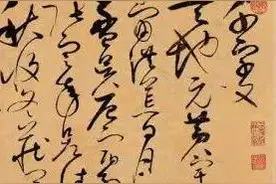 千字文
天地元黄宇
宙洪荒日月
盈昃辰宿列
張寒来暑往
秋收冬藏